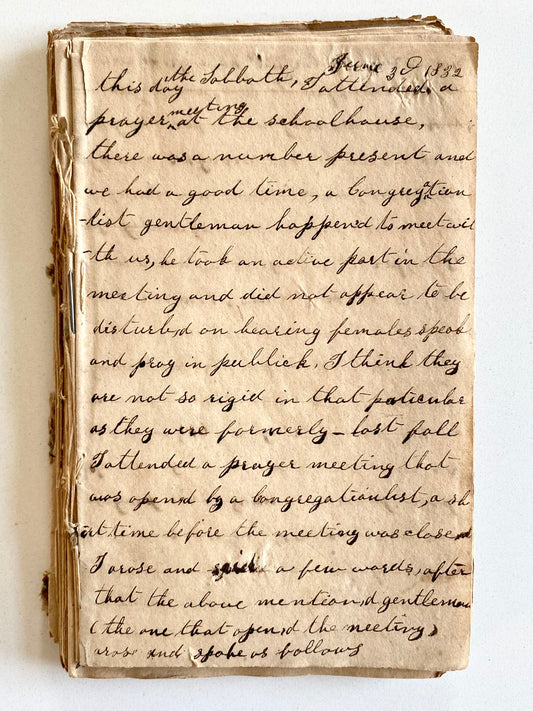 June 3d 1832
this day the Sabbath, I attended a
prayer meeting at the schoolhouse,
there was a number present and
we had a good time, a Congregation
-list gentleman happend to meet wit
-th us, he took an active part in the
meeting and did not appear to be
disturb,d on hearing females speak
and pray in publick, I think they
are not so rigid in that paticular
as they were formerly - last fall
I attended a prayer meeting that
was open,d by a Congregationlist, a sh
ort time before the meeting was close,d
I arose and said a few words, after
that the above mention,d gentleman
(the one that open,d the meeting)
arose and spoke as follows